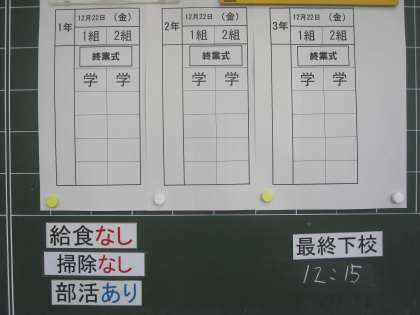 1年 12月22日 (金)
1組 2組
終業式
学 学
2年 12月22日 (金)
1組 2組
終業式
学 学
3年 12月22日 (金)
1組 2組
終業式
学 学
給食なし
掃除なし
部活あり
最終下校
12:15